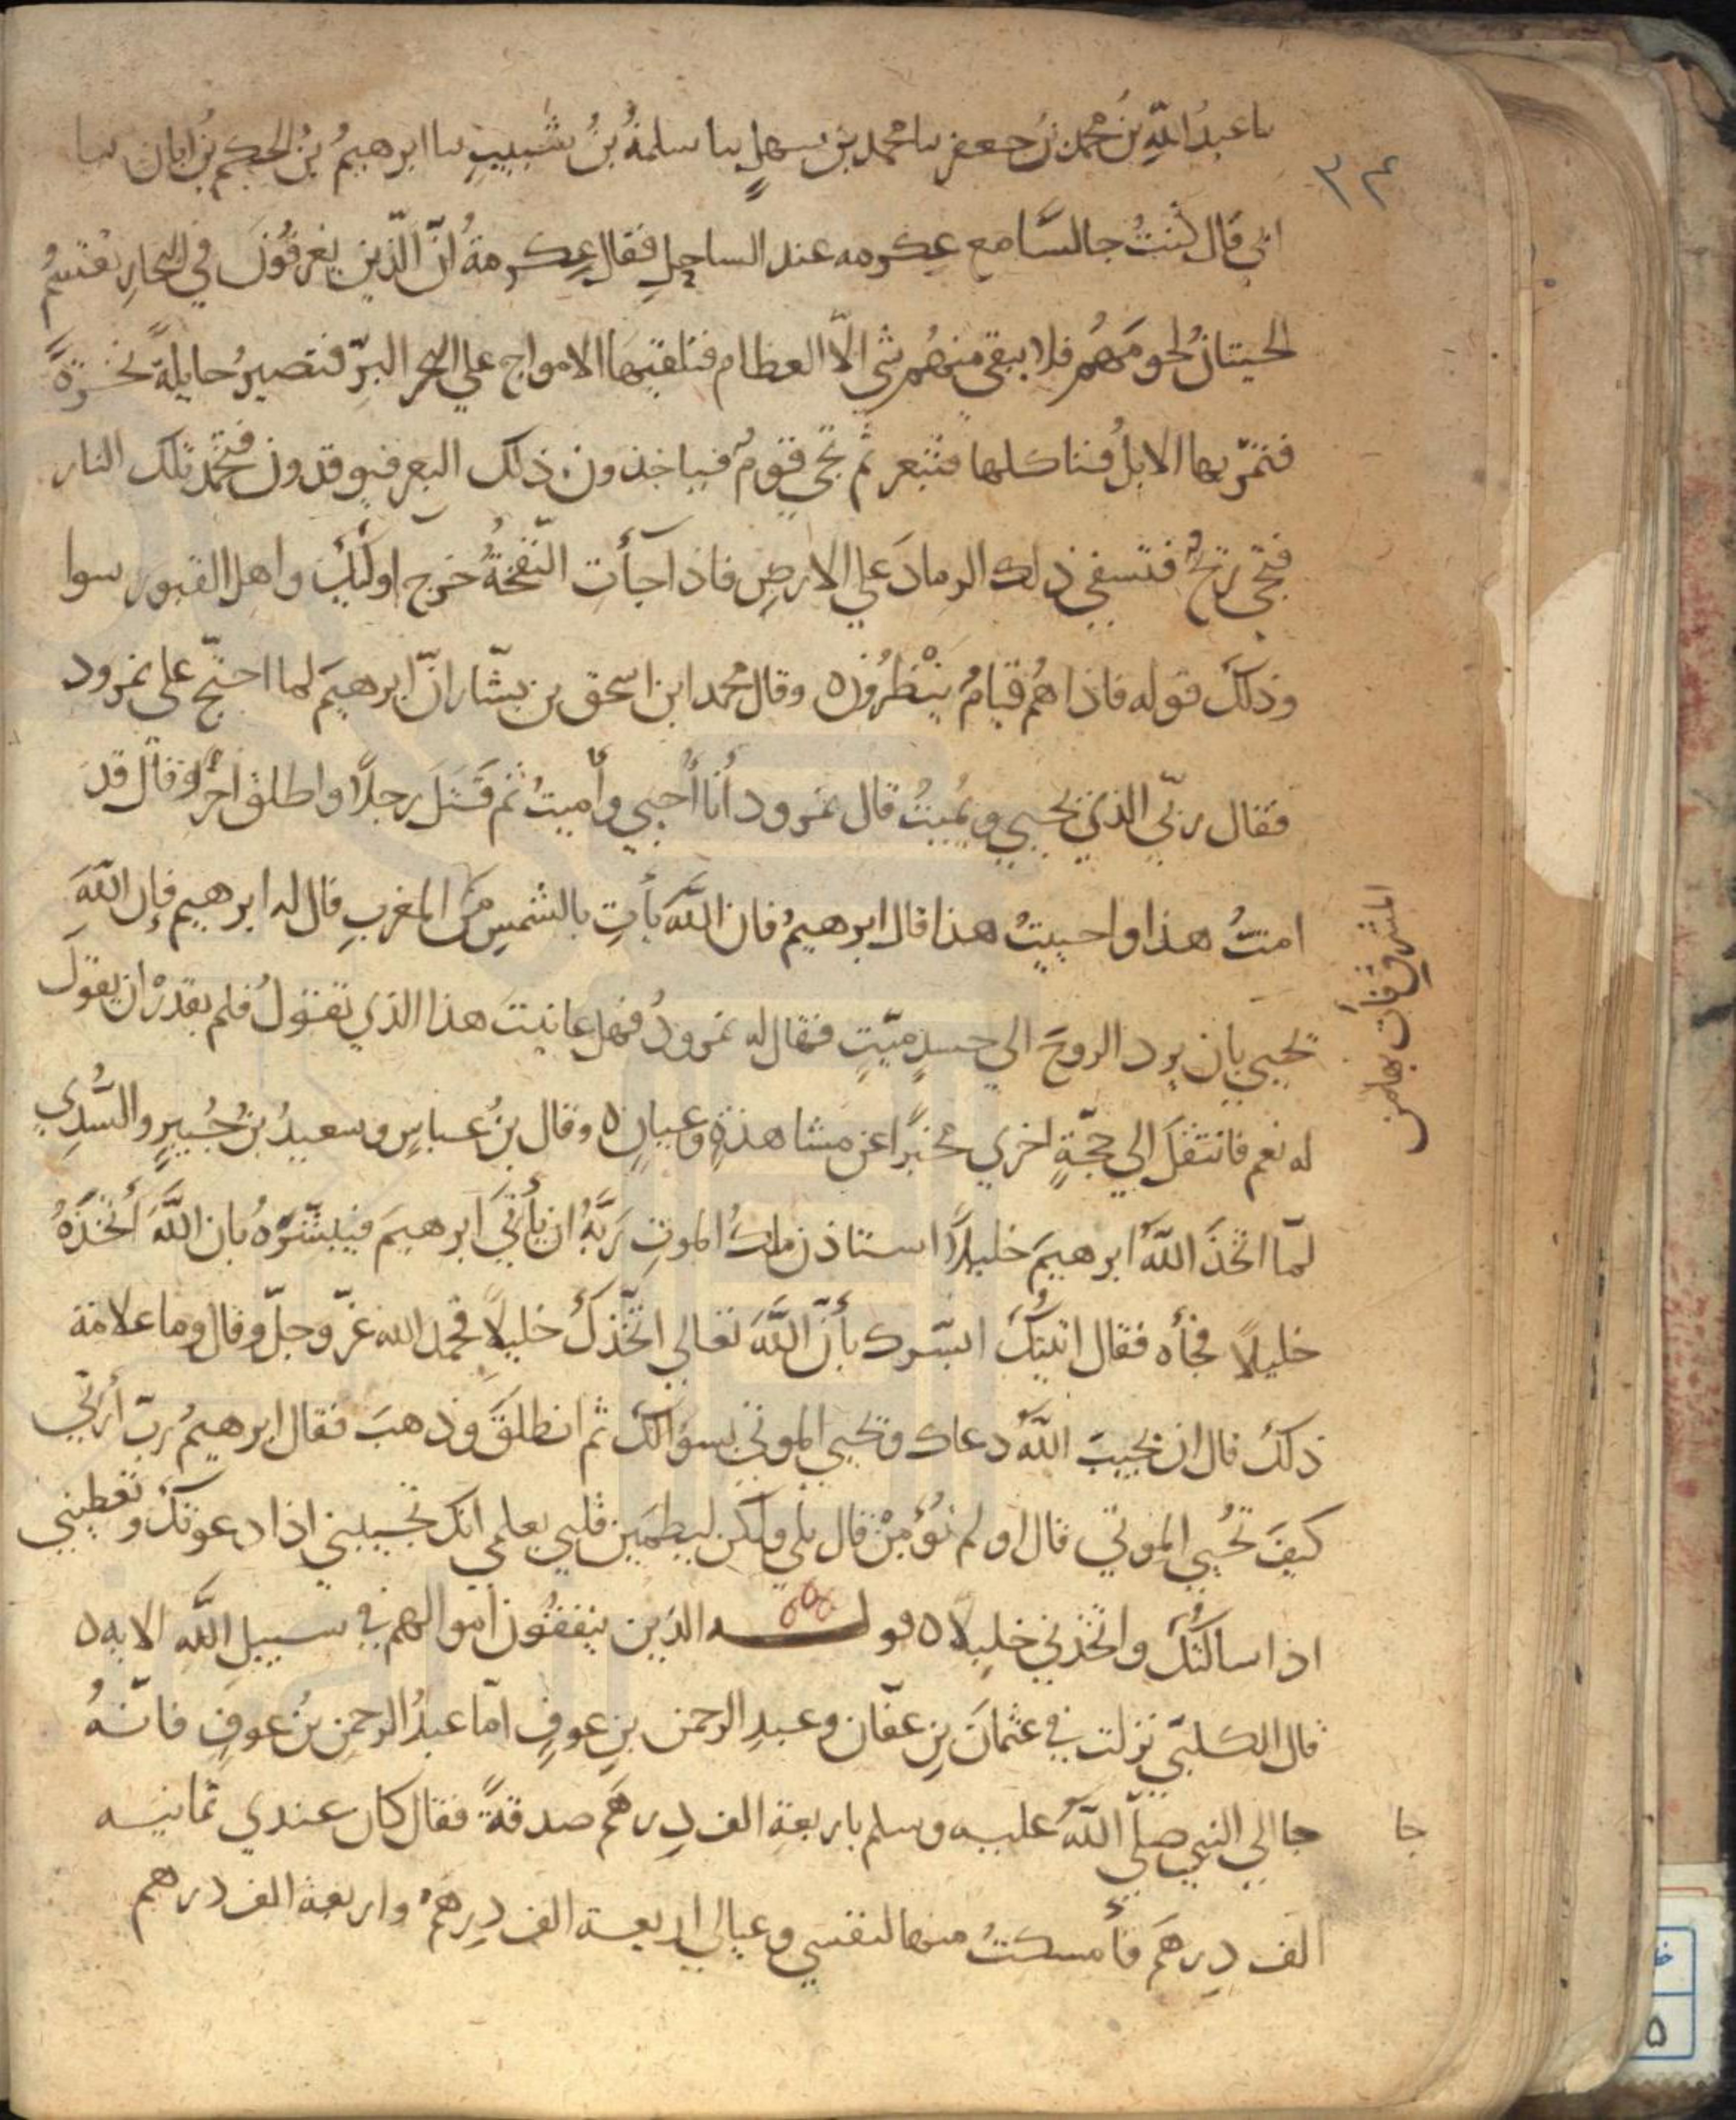 ٣٤
نا عبدُ اللّهِ بنُ محمد بن جعفر نا محمد بن سهلٍ نا سلمةُ بنُ شبيبٍ نا ابرهيمُ بنُ الحكم بنُ ابان نا
ابي قال كُنتُ جالسًا مع عكرمه عند الساحِلِ فقال عِكرمةُ انّ الّذين يغرقُونَ في البحارِ تقتسِمُ
الحيتانُ لحومَهُم فلا يبقى منهُم شى الّا العظام فتلقيها الامواج علي البحر البرّ فتصيرُ حايلةً نخرةً
فتمّر بها الابلُ فتاكلها فتبعر ثم تجى قومٌ فياخذون ذلك البعر فيوقدون فتخمد تلك النار
فتجى ريحٌ فتسفي ذلك الرمادَ علي الارضِ فاذا جآت النّفخةُ خرج اولئك واهل القبور سوا
وذلكَ قوله فاذا هُم قيامٌ ينْظرُون ٥ وقال محمد ابن اسحق بن بشّار انّ ابرهيمَ لما احتجّ على نمرود
فقال ربّي الذي يحيي ويُميتُ قال نمرود أنا أُحيي وأُميتُ ثم قَتَلَ رجلًا واطلق اخرًا وقال قد
امتُّ هذا واحييتُ هذا قال ابرهيمُ فان اللّهَ يأتِ بالشمسِ منَ المغربِ قال له ابرهيم فإن اللّهَ
المشرق فأت بها من
يحيي بان يرد الروحَ الي جسدٍ ميّتٍ فقال له نمرودُ فهل عاينتَ هذا الذي تقولُ فلم يقدرْ ان يقولَ
له نعم فانتقلَ الي حجّةٍ اخري مخبرًا عن مشاهدةٍ وعيانٍ ٥ وقال بنُ عباسٍ وسعيدُ بنُ جُبيرٍ والسُّدي
لمّا اتّخذَ اللّهُ ابرهيمَ خليلًا استاذن ملكُ الموتِ رَبَّهُ ان يأتيَ ابرهيمَ فيبشّرَهُ بان اللّهَ اتّخذَهُ
خليلًا فجأه فقال اتيتُكَ ابشّرك بأنّ اللّهَ تعالي اتّخذكَ خليلًا فحمد الله عزّ وجلّ وقال وما علامة
ذلك قال ان يجيبَ اللّهُ دعاك ويحيي الموتي بسؤالك ثم انطلقَ وذهبَ فقال ابرهيمُ ربّ أرني
كيفَ تُحيي الموتي قال اولم تؤمِنْ قال بلى ولكن ليطمين قلبي بعلمي انك تجيبني اذا دعوتكَ وتعطيني
اذا سالتُكَ واتّخذتني خليلًا ٥ قوله الذين ينفقون اموالهم في سبيلِ اللّه الايه ٥
قال الكلبيّ نزلت في عثمانَ بنِ عفّان وعبدِ الرحمن بنِ عوفٍ امّا عبدُ الرحمن بنُ عوفٍ فانّهُ
جا
جا الي النبي صلّي اللّهُ عليه وسلم باربعة الف دِرهَم صدقةً فقال كان عندي ثمانيه
الف دِرهَم فأمسكتُ منها لنفسي وعيالي اربعة الف دِرهمٌ واربعة الف درهم